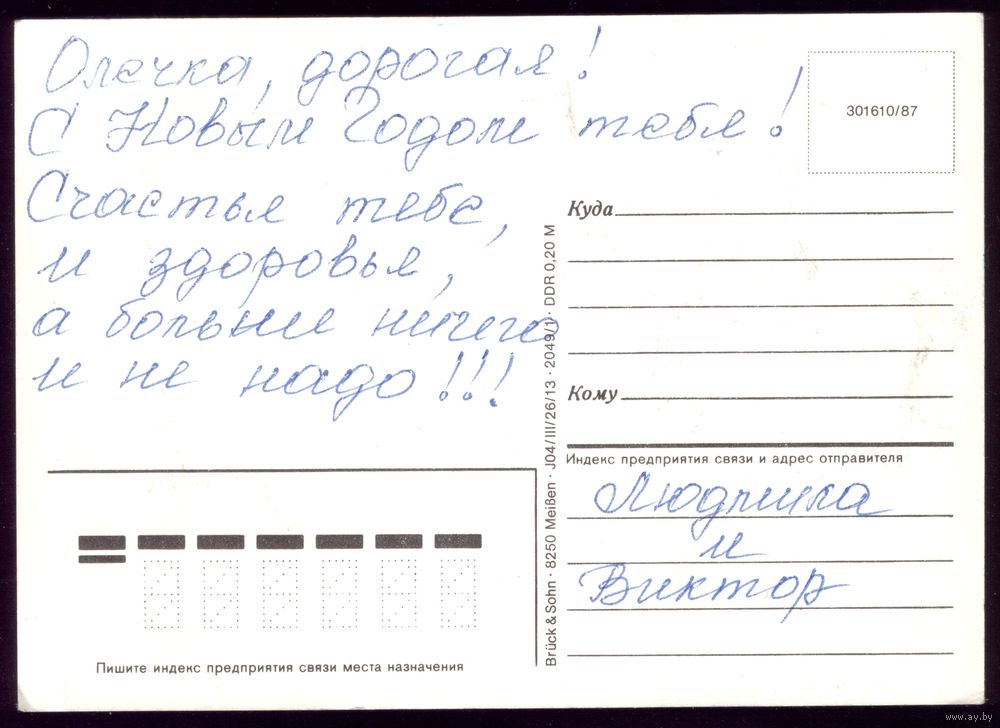 Олечка, дорогая!
С Новым Годом тебя!
Счастья тебе,
и здоровья,
а больше ничего
и не надо!!!
301610/87
Куда
Кому
Индекс предприятия связи и адрес отправителя
Людмила
и
Виктор
Brück & Sohn · 8250 Meißen · J04/III/26/13 · 2049/1 · DDR 0,20 M
Пишите индекс предприятия связи места назначения
www.ay.by